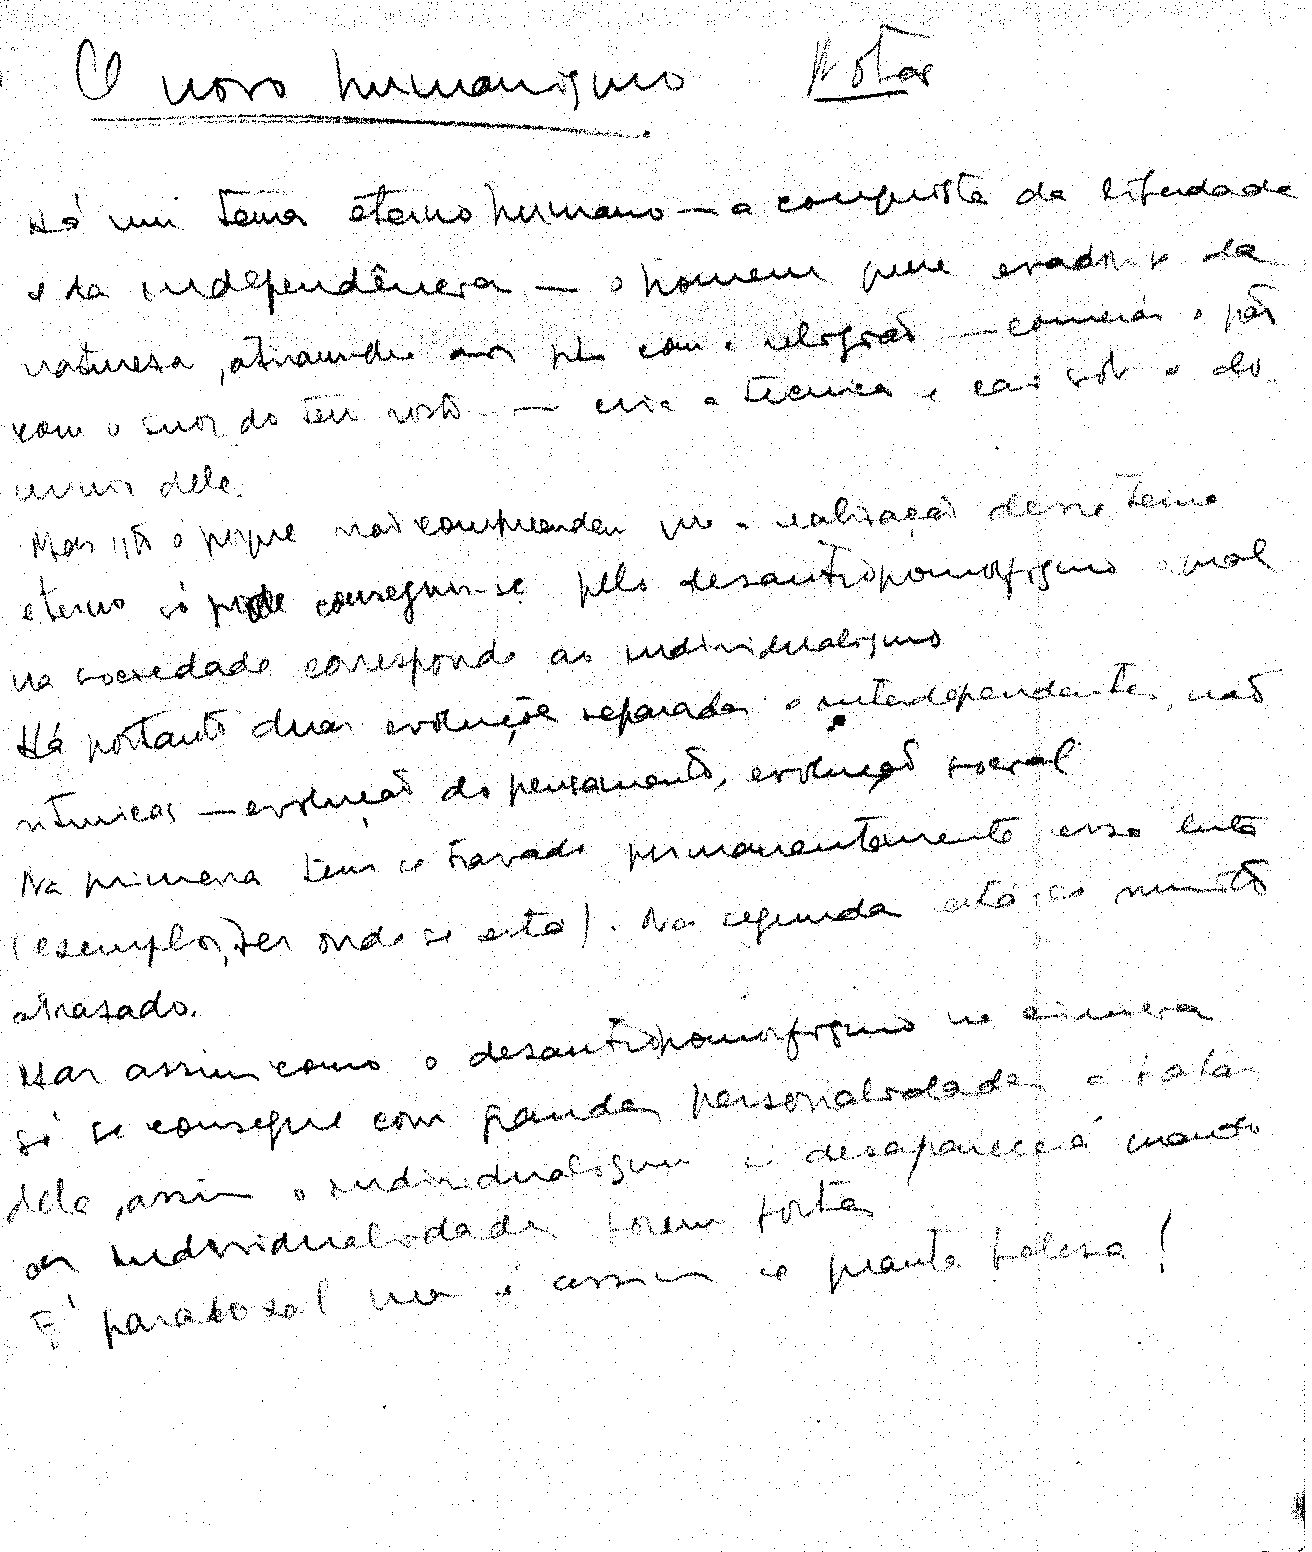 O novo humanismo Notas
Há um tema eterno humano — a conquista da liberdade
e da independência — o homem quere evadir-se da
natureza, atraves com a religião — comerás o pão
com o suor do teu rosto — cria a técnica e cai sob o do
mínio dela.
Mas isto é porque não compreendeu que a realização desse tema
eterno só pode conseguir-se pelo desantropomorfismo o qual
na sociedade corresponde ao individualismo
Há portanto duas evoluções separadas e interdependentes, não
rítmicas — evolução do pensamento, evolução social
Na primeira tem-se travado permanentemente essa luta
(exemplos, ver onde se está). Na segunda está-se muito
atrasado.
Mas assim como o desantropomorfismo na ciência
só se consegue com grandes personalidades e
dela, assim o individualismo só desaparecerá quando
as individualidades forem fortes
É paradoxal mas é assim e quanta beleza!